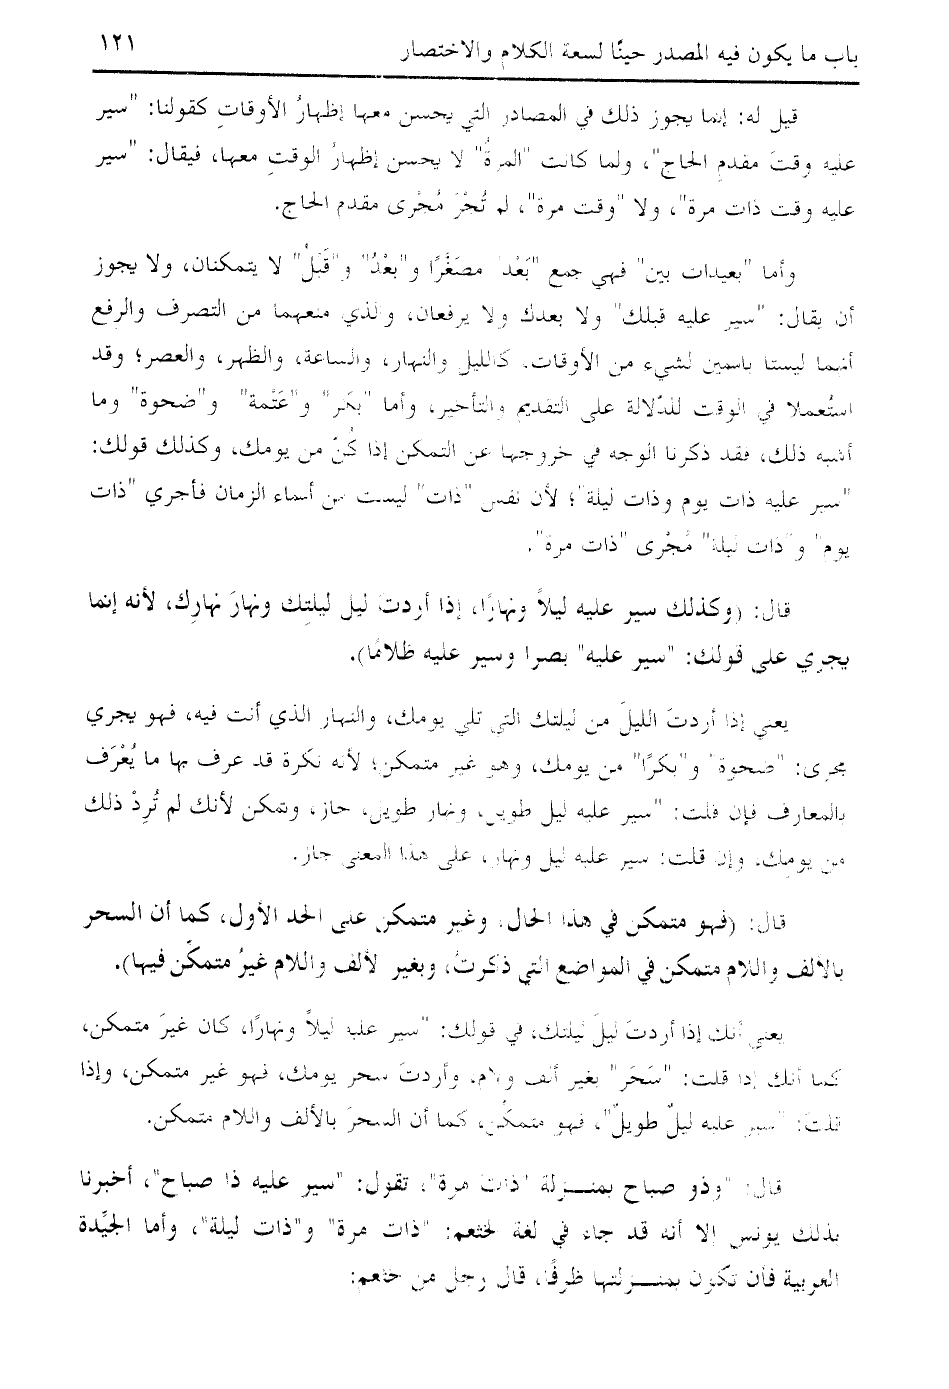 باب ما يكون فيه المصدر حينًا لسعة الكلام والاختصار ١٢١
قيل له: إنما يجوز ذلك في المصادر التي يحسن معها إظهارُ الأوقاتِ كقولنا: "سير
عليه وقتَ مقدمِ الحاج"، ولما كانت "المرةُ" لا يحسن إظهارُ الوقتِ معها، فيقال: "سير
عليه وقت ذات مرة"، ولا "وقت مرة"، لم تُجْرَ مُجْرى مقدم الحاج.
وأما "بعيدات بين" فهي جمع "بَعْد" مصَغَّرًا و"بعْدُ" و"قَبَلْ" لا يتمكنان، ولا يجوز
أن يقال: "سير عليه قبلك" ولا بعدك ولا يرفعان، والذي منعهما من التصرف والرفع
أنهما ليستا باسمين لشيء من الأوقات. كالليل والنهار، والساعة، والظهر، والعصر؛ وقد
استُعملا في الوقت للدّلالة على التقديم والتأخير، وأما "بكر" و"عَتْمة" و"ضحوة" وما
أشبه ذلك، فقد ذكرنا الوجه في خروجها عن التمكن إذا كُنّ من يومك، وكذلك قولك:
"سير عليه ذات يوم وذات ليلة"؛ لأن نفس "ذات" ليست من أسماء الزمان فأجري "ذات
يوم" و"ذات ليلة" مُجْرى "ذات مرة".
قال: (وكذلك سير عليه ليلاً ونهارًا، إذا أردتَ ليل ليلتِك ونهارَ نهارِك، لأنه إنما
يجري على قولك: "سير عليه" بصرا وسير عليه ظلامًا).
يعني إذا أردتَ الليلَ من ليلتك التي تلي يومك، والنهار الذي أنت فيه، فهو يجري
مجرى: "ضحوة" و"بكرًا" من يومك، وهو غير متمكن؛ لأنه نكرة قد عرف بها ما يُعْرَف
بالمعارف فإن قلت: "سير عليه ليل طويل، ونهار طويل، جاز، وتمكن لأنك لم تُرِدْ ذلك
من يومك. وإن قلت: سير عليه ليل ونهار، على هذا المعنى جاز.
قال: (فهو متمكن في هذا الحال، وغير متمكن على الحد الأول، كما أن السحر
بالألف واللام متمكن في المواضع التي ذكرتُ، وبغير الألف واللام غيرُ متمكّن فيها).
يعني أنك إذا أردتَ ليلَ ليلتك، في قولك: "سير عليه ليلاً ونهارًا، كان غيرَ متمكن،
كما أنك إذا قلت: "سَحَر" بغير ألف ولام، وأردتَ سحر يومك، فهو غير متمكن، وإذا
قلتَ: "سير عليه ليلٌ طويلٌ"، فهو متمكن، كما أن السحرَ بالألف واللام متمكن.
قال: "وذو صباح بمنـزلة "ذات مرة"، تقول: "سير عليه ذا صباح"، أخبرنا
بذلك يونس إلا أنه قد جاء في لغة لخثعم: "ذات مرة" و"ذات ليلة"، وأما الجيِّدة
العربية فأن تكون بمنـزلتها ظرفًا، قال رجل من خثعم: